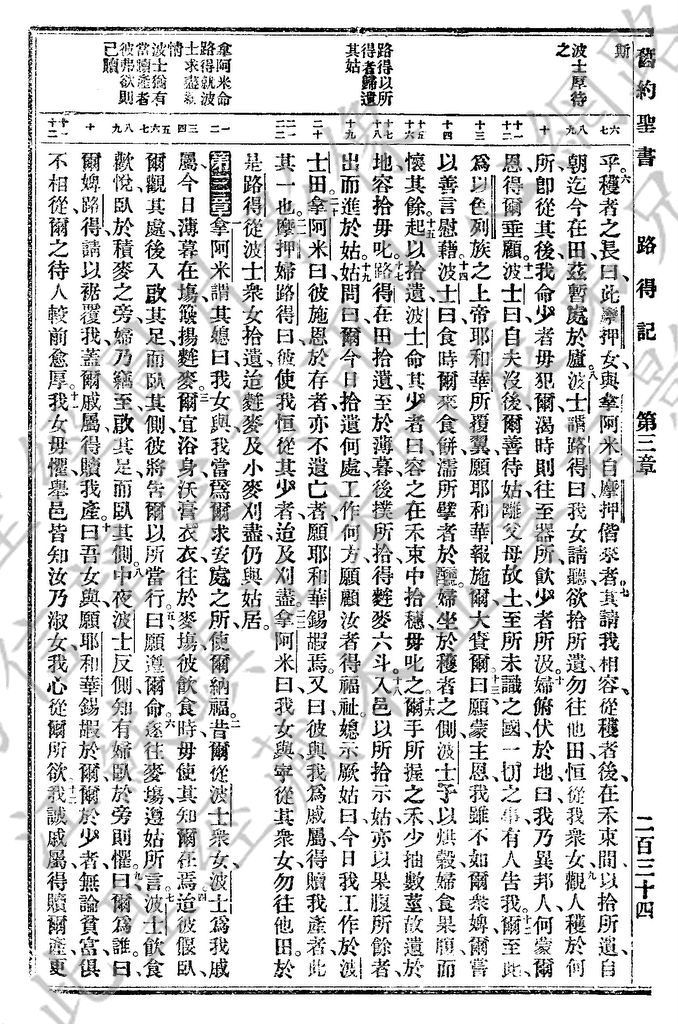 舊約聖書 路得記 第三章 二百三十四
斯
波士厚待
之
路得以所
得者歸遺
其姑
拿阿米命
路得就波
士求盡親
情
波士猶有
當贖產者
彼弗欲則
己贖
乎穫者之長曰此摩押女與拿阿米自摩押偕來者其請我相容從穫者後在禾束間以拾所遺自
朝迄今在田茲暫處於廬波士謂路得曰我女請聽欲拾所遺勿往他田恒從我衆女觀人穫於何
所卽從其後我命少者毋犯爾渴時則往至器所飲少者所汲婦俯伏於地曰我乃異邦人何蒙爾
恩得爾垂顧波士曰自夫沒後爾善待姑離父母故土至所未識之國一切之事有人告我爾至此
爲以色列族之上帝耶和華所覆翼願耶和華報施爾大賚爾曰願蒙主恩我雖不如爾衆婢爾嘗
以善言慰藉波士曰食時爾來食餅濡所擘者於醯婦坐於穫者之側波士予以烘穀婦食果腹而
懷其餘起以拾遺波士命其少者曰容之在禾束中拾穗毋叱之爾手所握之禾少抽數莖故遺於
地容拾毋叱路得在田拾遺至於薄暮後撲所拾得麰麥六斗入邑以所拾示姑亦以果腹所餘者
出而進於姑姑問曰爾今日拾遺何處工作何方願顧汝者得福祉媳示厥姑曰今日我工作於波
士田拿阿米曰彼施恩於存者亦不遺亡者願耶和華錫嘏焉又曰彼與我爲戚屬得贖我產者此
其一也摩押婦路得曰彼使我恒從其少者迨及刈盡拿阿米曰我女與寧從其衆女勿往他田於
是路得從波士衆女拾遺迨麰麥及小麥刈盡仍與姑居
第三章拿阿米謂其媳曰我女與我當爲爾求安處之所使爾納福昔爾從波士衆女波士爲我戚
屬今日薄暮在塲簸揚麰麥爾宜浴身沃膏衣衣往於麥塲彼飲食時毋使其知爾在焉迨彼偃臥
爾觀其處後入啟其足而臥其側彼將告爾以所當行曰願遵爾命遂往麥塲遵姑所言波士飲食
歡悅臥於積麥之旁婦乃竊至啟其足而臥其側中夜波士反側知有婦臥於旁則懼曰爾爲誰曰
爾婢路得請以裾覆我蓋爾戚屬得贖我產曰吾女與願耶和華錫嘏於爾爾於少者無論貧富俱
不相從爾之待人較前愈厚我女毋懼舉邑皆知汝乃淑女我心從爾所欲我誠戚屬得贖爾產更